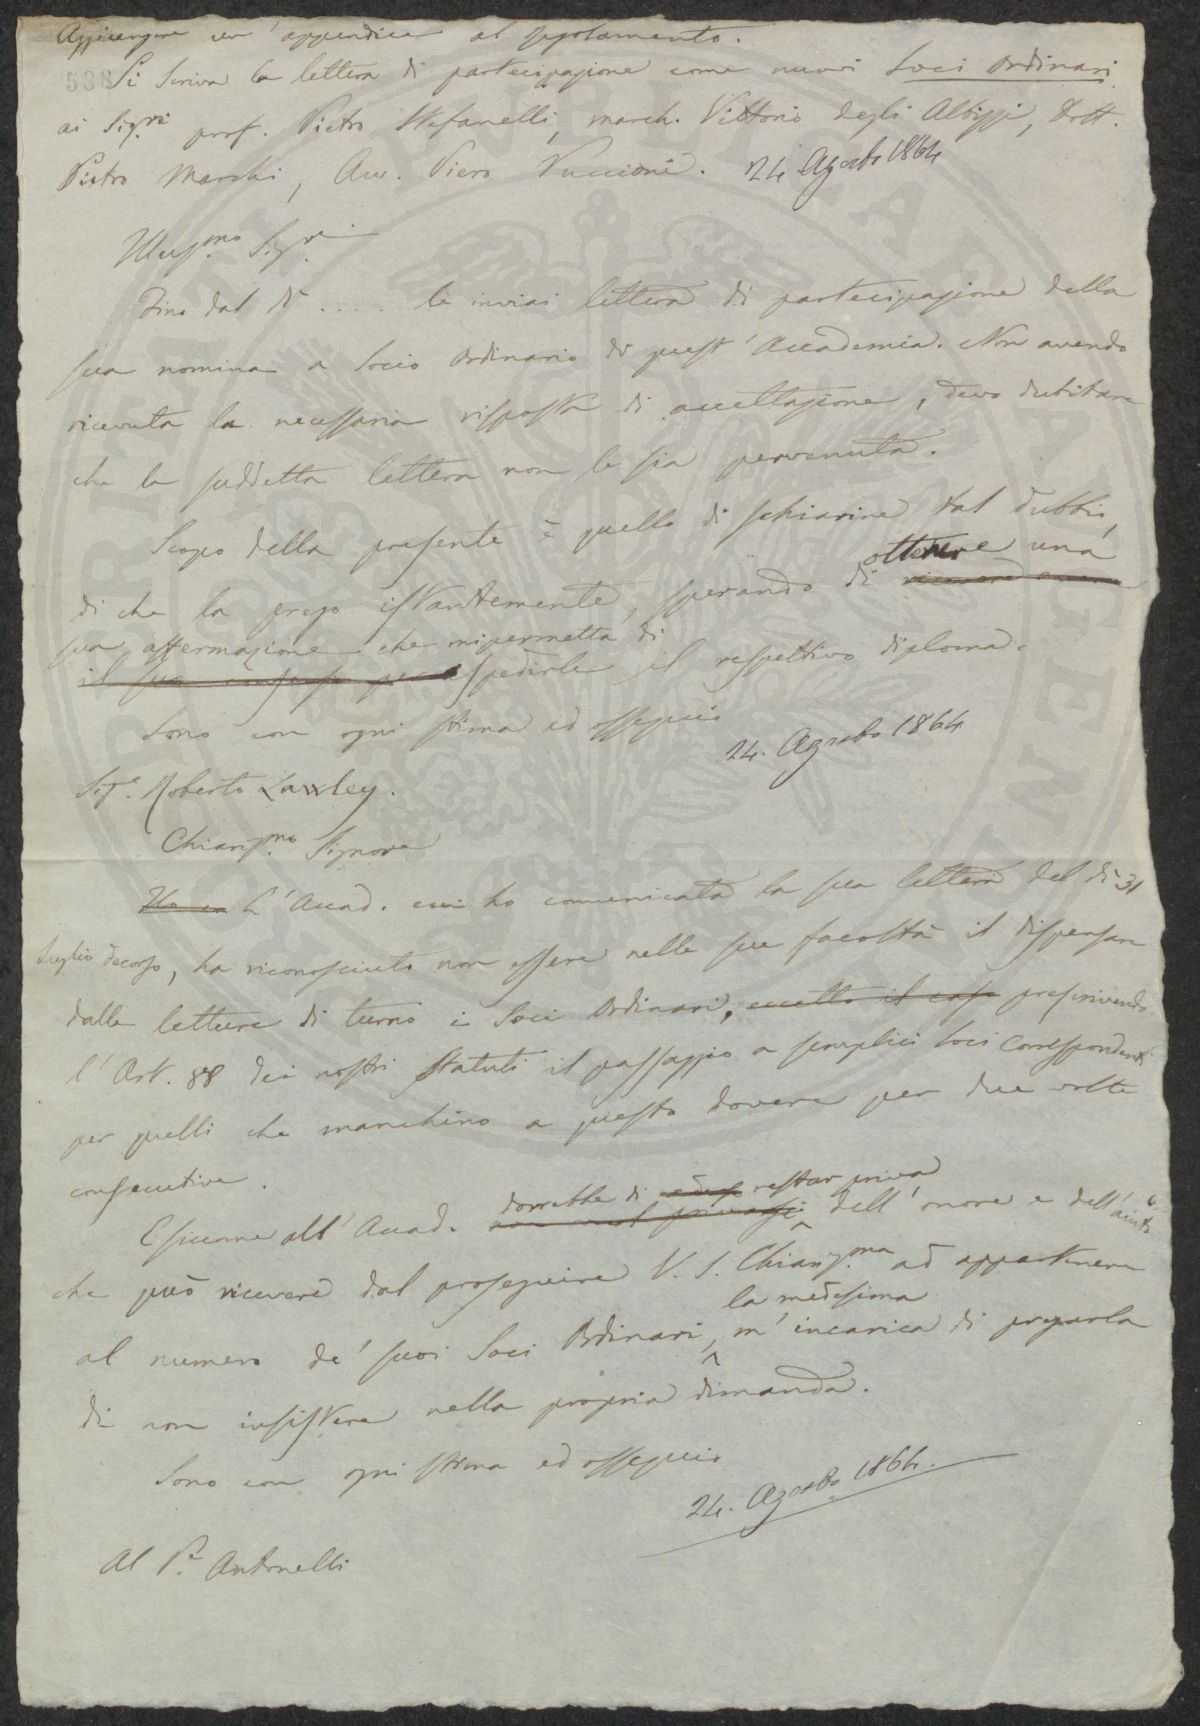 Aggiungere un' appendice al regolamento.
538 Si scriva la lettera di partecipazione come nuovi Soci Ordinari
ai Sigri prof. Pietro Stefanelli, march. Vittorio degli Albizzi, Dott.
Pietro Marchi, Avv. Piero Puccioni. 24 Agosto 1864
Illusmo Sigre
Fino dal dì ..... le inviai lettera di partecipazione della
sua nomina a Socio Ordinario di quest' Accademia. Non avendo
ricevuta la necessaria risposta di accettazione, devo dubitare
che la suddetta lettera non le sia pervenuta.
Scopo della presente è quello di schiarire tal dubbio,
ottenere una
di che la prego istantemente, sperando di
sua affermazione che mi permetta di
il suo consenso per spedirle il respettivo diploma.
Sono con ogni stima ed ossequio
24. Agosto 1864
Sigr. Roberto Lawley.
Chiarismo Signore
L' Accad. cui ho comunicata la sua lettera del dì 31
Luglio decorso, ha riconosciuto non essere nelle sue facoltà il dispensare
dalle letture di turno i Soci Ordinari, eccetto il caso prescrivendo
l' Art. 88 dei nostri Statuti il passaggio a semplici Soci Corrispondenti
per quelli che manchino a questo dovere per due volte
consecutive.
dorrebbe di restar priva
E siccome all' Accad. dell' onore e dell' aiuto
che può ricevere dal proseguire V. S. Chiarisma ad appartenere
la medesima
al numero de' suoi Soci Ordinari, m' incarica di pregarla
di non insistere nella propria dimanda.
Sono con ogni stima ed ossequio
24. Agosto 1864.
Al Pe. Antonelli